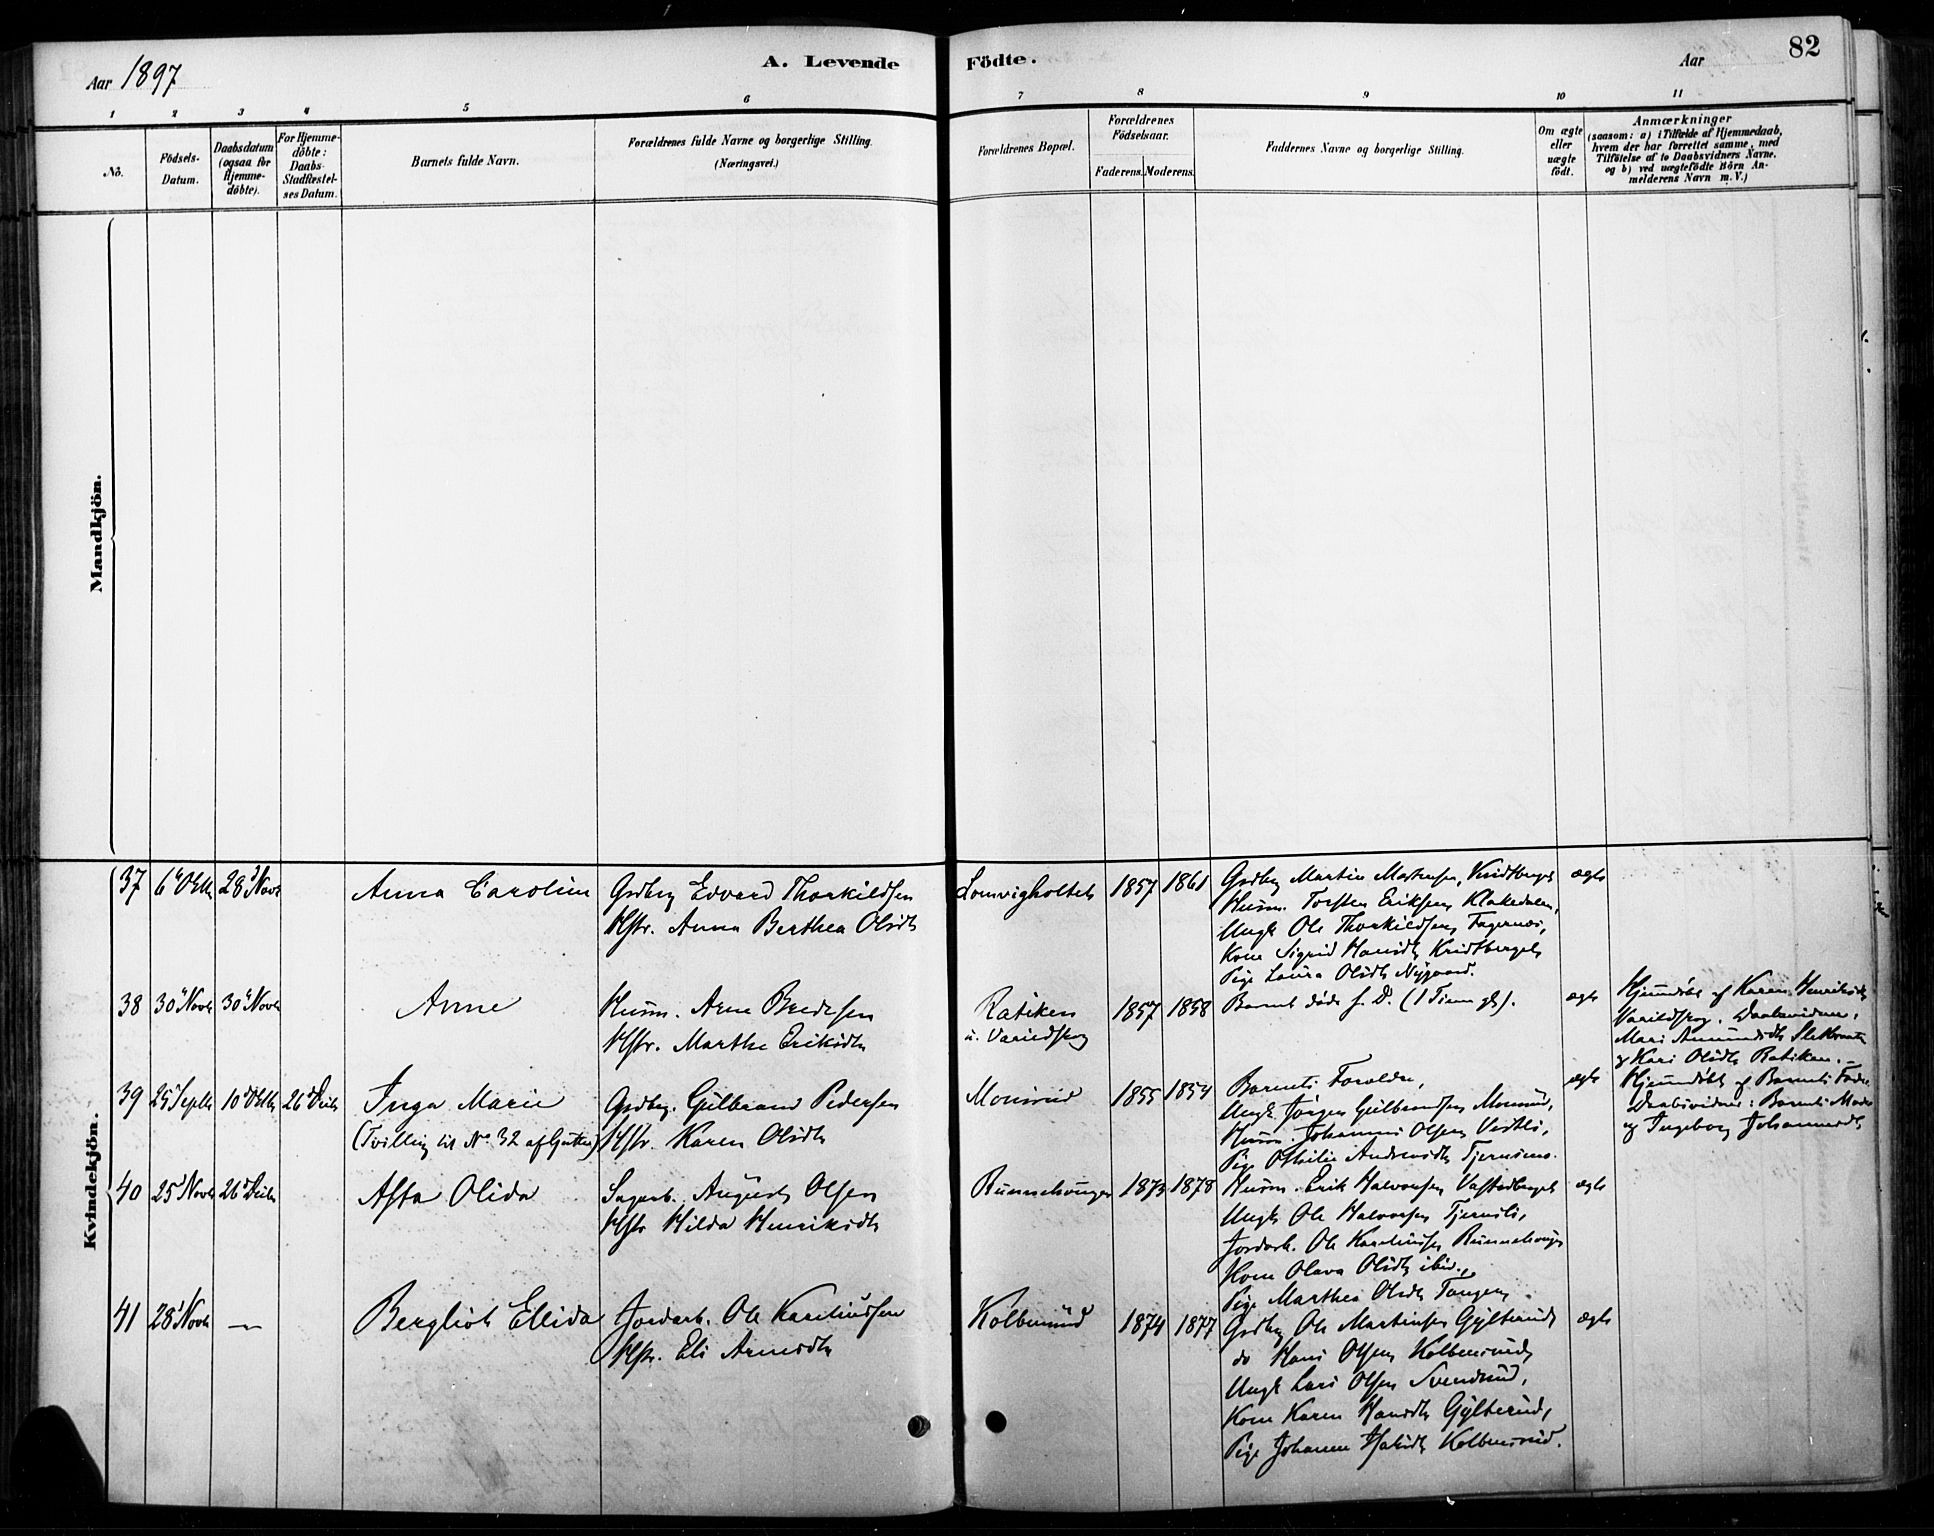 Aar 1897
A. Levende
Födte.
Aar
82
1 2 3 4 5 6 7 8 9 10 11
No.
Födsels-
Datum.
Daabsdatum
(ogsaa for
Hjemme-
döbte).
For Hjemme-
döbte:
Daabs-
Stadfæstel-
ses Datum.
Barnets fulde Navn.
Forældrenes fulde Navne og borgerlige Stilling.
(Næringsvei.)
Forældrenes Bopæl.
Forældrenes
Födselsaar.
Faderens. Moderens.
Faddernes Navne og borgerlige Stilling.
Om ægte
eller
uægte
födt.
Anmærkninger
(saasom: a) i Tilfælde af Hjemmedaab,
hvem der har forrettet samme, med
Tilföielse af to Daabsvidners Navne,
og b) ved uægtefödte Börn An-
melderens Navn m. V.)
Mandkjön.
Kvindekjön.
37 6 28 Novb Anna Caroline
Gadbg Edvard Thorkildsen
Hstr. Anna Berthea Olsdt
Lomvigholtet 1857 1861
Gadbg Martin
Husm. Torsten Eriksen Klakedalen,
Ungk Ole Thorkildsen Fagernæs,
Kone Sigrid Hansdt
Pige Laura Olsdt Nygaard.
ægte
38 30 Novb 30 Novb Anne
Husm. Arne Bredesen
Hstr. Marthe Eriksdt
Ratiken
u. Varildskog
1857 1858
Barnet døde s. D. (1 Time gl.).
ægte
Hjemdøbt af Karen Henriksdt
Varildskog. Daabsvidner:
Mari Amundsdt
og Kari Olsdt Ratiken.
39 25 Septb 10 Oktb 26 Decb Inga Marie
(Tvilling til No. 32 af Gutter)
Gadbg. Gulbrand Pedersen
Hstr. Karen Olsdt
Monsrud 1855 1854
Barnets Forældre,
Ungk. Jørgen Gulbrandsen Monsrud,
Husm. Johannes Olsen
Pige Othilie Andreasdt
ægte
Hjemdøbt af Barnets Fader.
Daabsvidner: Barnets Moder
og Ingeborg Johannesdt
40 25 Novb 26 Decb Asta Olida
Sagarb. August Olsen
Hstr Hilda Henriksdt
1873 1878
Husm. Erik Halvorsen
Ungk Ole Halvorsen
Jordarb. Ole Karelius
Kone Olava Olsdt ibid.,
Pige Marthea Olsdt Tangen.
ægte
41 28 Novb — Bergliot Ellida
Jordarb. Ole Kareliussen
Hstr. Eli Arnesdt
Kolbensrud 1874 1877
Gadbg Ole Martinsen Gylterud,
do Hans Olsen Kolbensrud,
Ungk Lars Olsen Svendsrud,
Kone Karen Hansdt Gylterud,
Pige Johanne Kolbensrud.
ægte